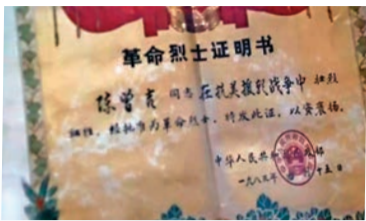 革命烈士证明书
陈曾吉 同志在抗美援朝战争中 壮烈
牺牲，经批准为革命烈士，特发此证，以资褒扬。
中华人民共和
一九八三年 十五日